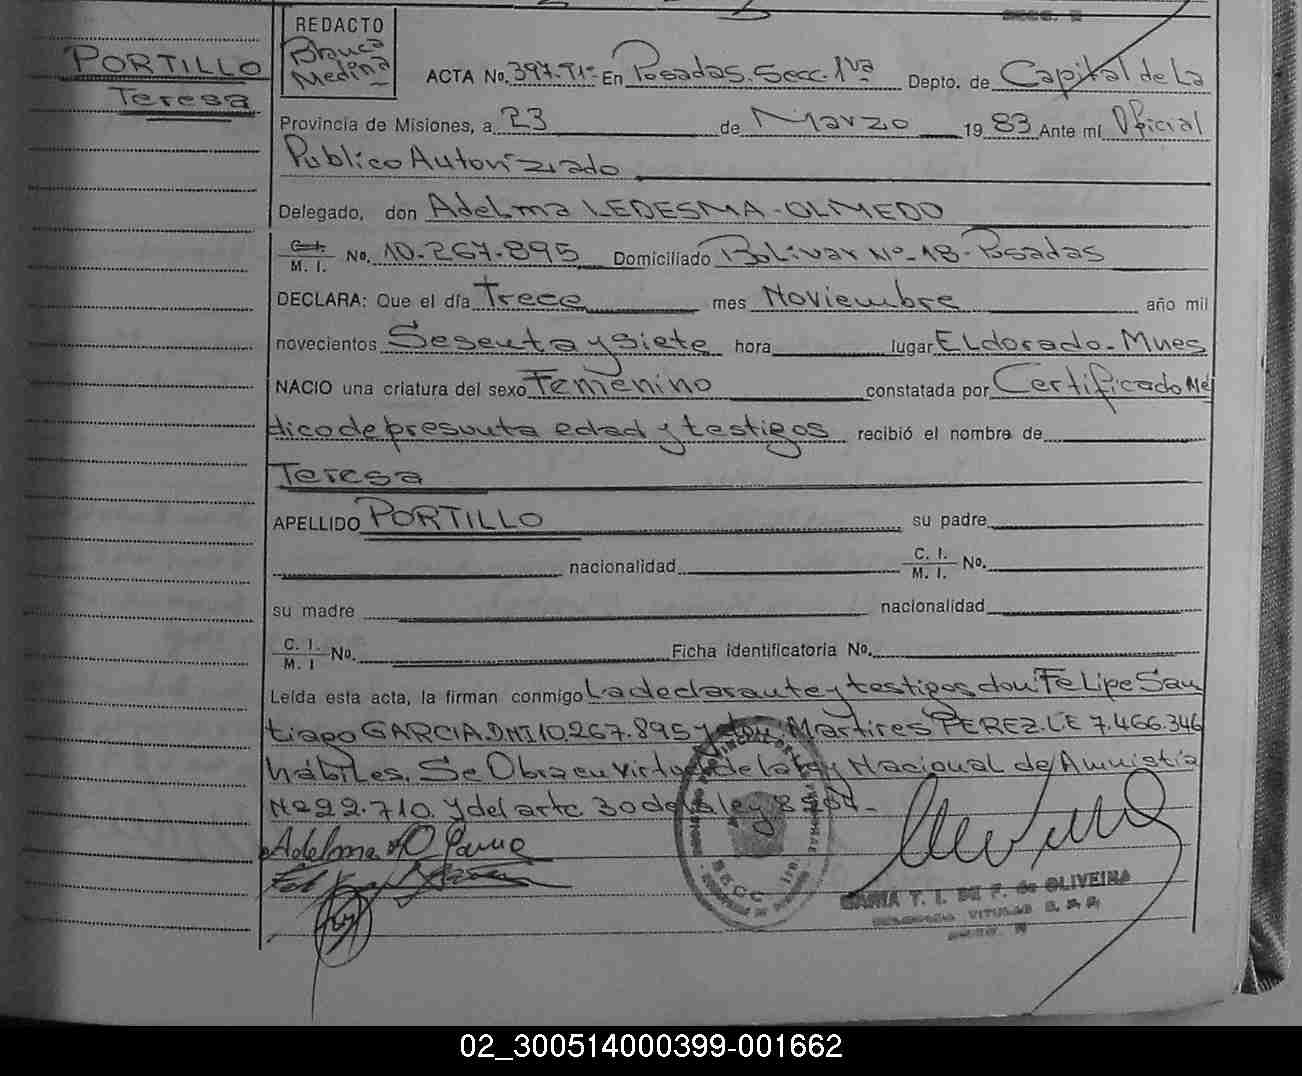 PORTILLO
Teresa
REDACTO
Blanca
Medina
ACTA No. 397-Tº1- En Posadas. Secc. 1ra Depto. de Capital de La
Provincia de Misiones, a 23 de Marzo 1983 Ante mí Oficial
Publico Autoriziado
Delegado, don Adelma LEDESMA-OLMEDO
C. I. M. I. No. 10.267.895 Domiciliado Bolivar Nº-18-Posadas
DECLARA: Que el día Trece mes Noviembre año mil
novecientos Sesenta y Siete hora lugar ELdorado-Mnes
NACIO una criatura del sexo Femenino constatada por Certificado Mé
dico de presunta edad y testigos recibió el nombre de
Teresa
APELLIDO PORTILLO su padre
nacionalidad C. I. M. I. No.
su madre nacionalidad
C. I. M. I No. Ficha Identificatoria No.
Leída esta acta, la firman conmigo La declarante y testigos don Felipe San
tiago GARCIA.DNI 10.267.895 y don Martires PEREZ.LE 7.466.346
hábiles. Se Obra en virtud de la Ley Nacional de Amnistia
Nº 22.710. y del artc 30 de la ley
SECC. 1ra
MARIA T. I. DE F. de OLIVEIRA
DELEGADA TITULAR
02_300514000399-001662